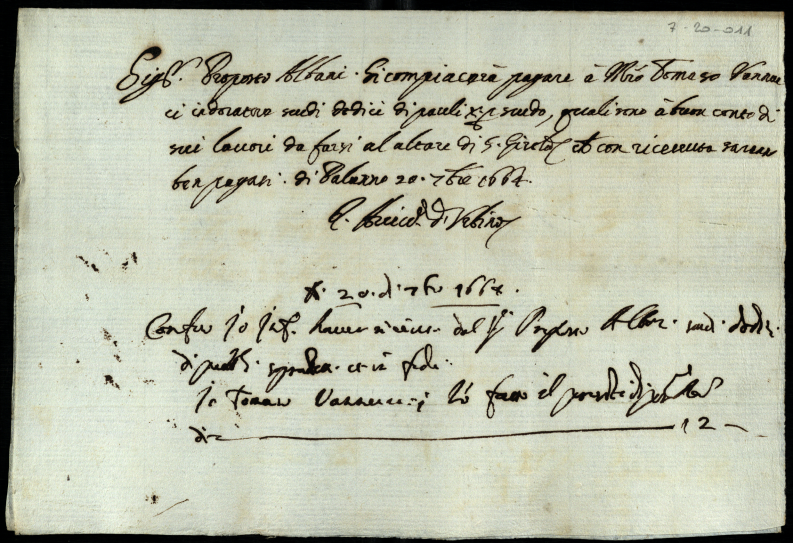 7-20-011
Sigr. Proposto Albani. Si compiacerà pagare à Mro Tomaso Vannuc
ci indoratore scudi dodici di pauli X p scudo, quali sono à buon conto di
sui lauori da farsi al altare di S. et con riceuuta saran
ben pagati. di Palazzo 20. 7bre 1667.
di Urbino
A. 20. di 7bre 1667.
Confeso Io hauer riceuuto dal Sigr Proposto Albani scudi dodici
di pauli et in fede
Io Tomaso Vannucci fo il presente
di — 12 —